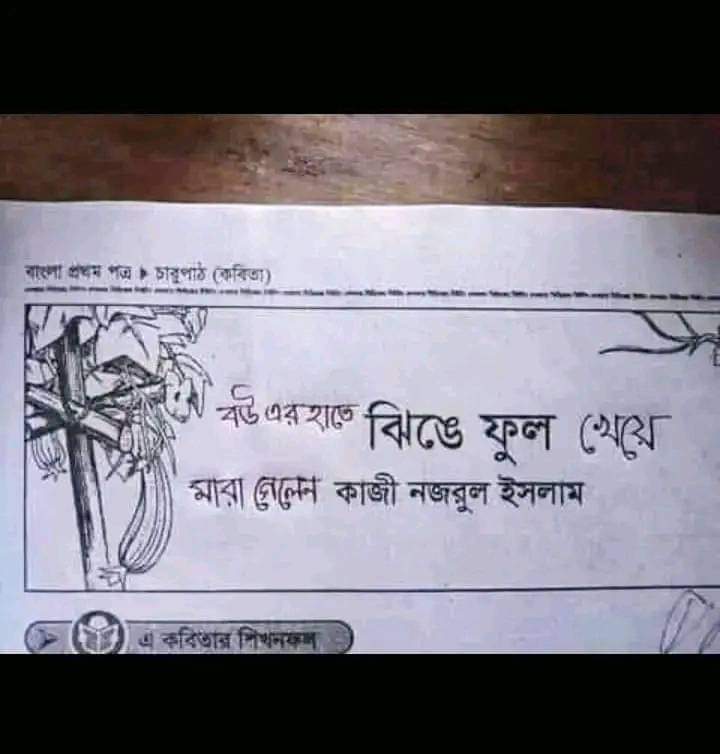 বাংলা প্রথম পত্র ▶ চারুপাঠ (কবিতা)
বউ এর হাতে ঝিঙে ফুল খেয়ে
মারা গেলেন কাজী নজরুল ইসলাম
এ কবিতার শিখনফল